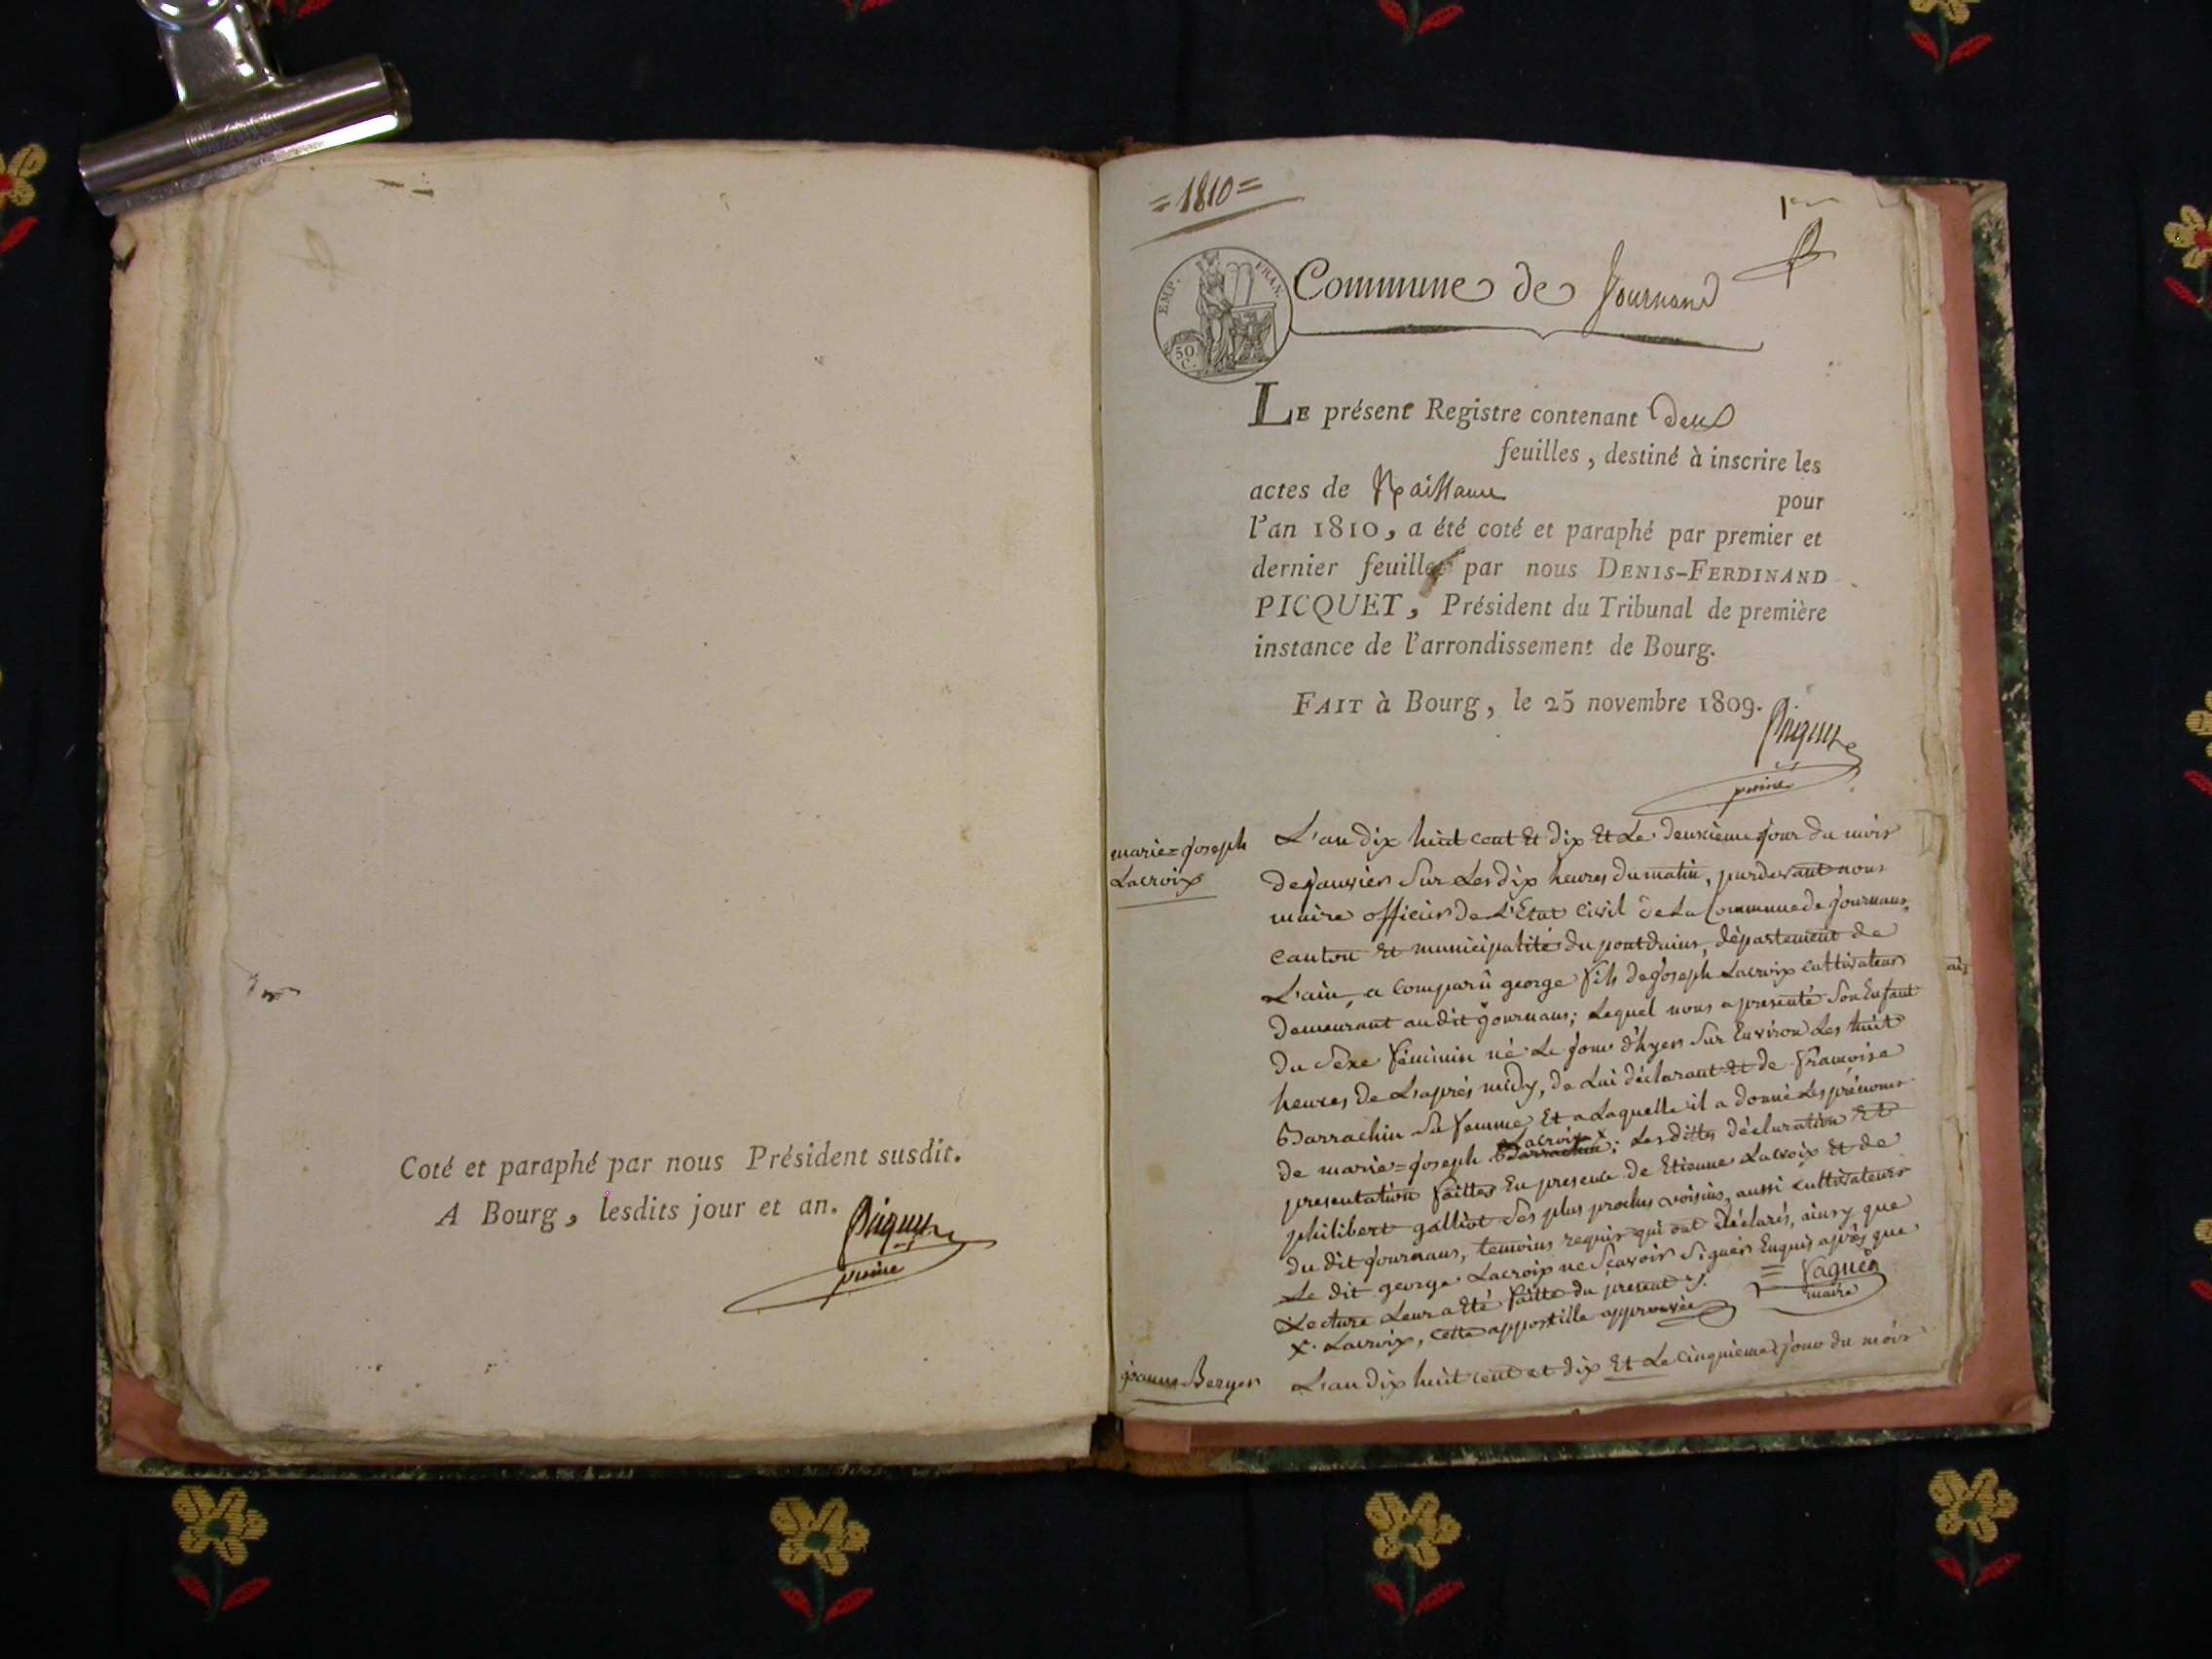 Coté et paraphé par nous Président susdit.
A Bourg, lesdits jour et an.
Picquet
=1810=
1er
EMP. FRAN.
50
C.
Commune de Journans
LE présent Registre contenant deux
feuilles, destiné à inscrire les
actes de Naissance pour
l'an 1810, a été coté et paraphé par premier et
dernier feuillet par nous DENIS-FERDINAND
PICQUET, Président du Tribunal de première
instance de l'arrondissement de Bourg.
FAIT à Bourg, le 25 novembre 1809.
Picquet
marie=joseph
Lacroix
L'an dix huit cent Et dix Et Le deuxieme jour du mois
de janvier Sur Les dix heures du matin, pardevant nous
maire officier de L'Etat Civil de La Commune de journans,
canton Et municipalité du pontdains, département de
L'ain, a comparû george fils de joseph Lacroix cultivateur
demeurant au dit journans; Lequel nous a presenté Son Enfant
du Sexe féminin né Le jour d'hyer Sur Environ Les huit
heures de L'après midy, de Lui déclarant Et de françoise
Barrachin Sa femme Et a Laquelle il a donné Les prénoms
de marie=joseph Barrachin Lacroix x; Les dittes déclaration Et
presentation faittes En presence de Etienne Lacroix Et de
philibert galliot Ses plus proches voisins, aussi cultivateurs
du dit journans, temoins requis qui ont déclarés, ainsy que
Le dit george Lacroix ne Scavoir Signer Enquis après que
Lecture Leur a Eté faitte du present ./.
= faguer
maire
x. Lacroix, cette appostille approuvée
jeanne Berger
L'an dix huit cent et dix Et Le cinquieme jour du mois